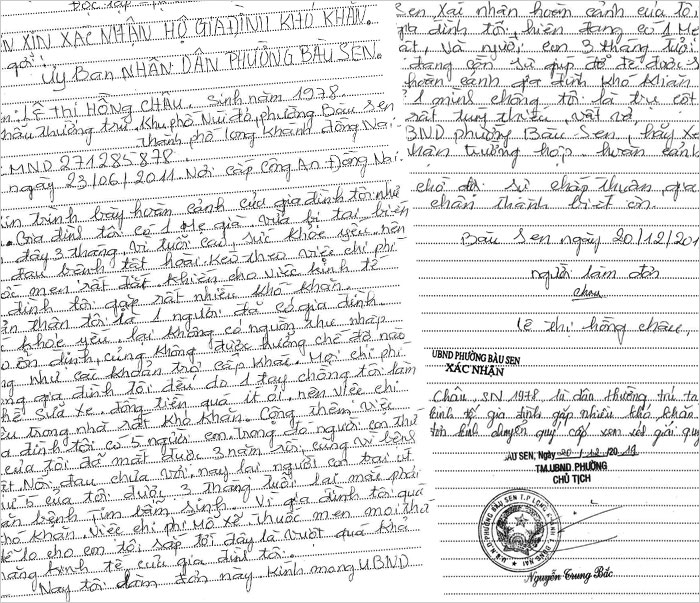 Độc lập
N XIN XÁC NHẬN HỘ GIA ĐÌNH KHÓ KHĂN.
gởi:
Uỷ Ban NHÂN DÂN PHƯỜNG BÀU SEN.
n: LÊ Thị HỒNG CHÂU. Sinh năm 1978.
khẩu thường trú. Khu phố Núi đỏ, phường Bàu sen
thành phố long khánh đồng Nai
MND 271285878.
ngày 23/06/2011 Nơi cấp Công An Đồng Nai.
in trình bày hoàn cảnh của gia đình tôi như
. Gia đình tôi có 1 Mẹ già vừa bị tai biến
đây 3 tháng, vì tuổi cao, sức khỏe yếu, nên
đau bệnh tật hoài. Kéo theo việc chi phí
ốc men rất đắt khiến cho việc kinh tế
đình tôi gặp rất nhiều khó khăn.
ản thân tôi là 1 người đã có gia đình.
khỏe yếu, lại không có nguồn thu nhập
ổn định, cũng không được hưởng chế độ nào
ng như các khoản trợ cấp khác. Mọi chi phí
ng gia đình tôi đều do 1 tay chồng tôi làm
hề sửa xe. đồng tiền quá ít ỏi, nên việc chi
êu trong nhà rất khó khăn. Cộng thêm việc
a đình tôi có 5 người con, trong đó người con thứ
của tôi đã mất được 3 năm rồi, cũng vì bệnh
ật. Nỗi đau chưa vơi, nay lại người con trai út
ứ 5 của tôi được 3 tháng tuổi lại mắc phải
ăn bệnh Tim bẩm sinh. Vì gia đình tôi quá
hó khăn. Việc chi phí Mổ xẻ, thuốc men mọi thứ
ể lo cho em tôi sắp tới đây là vượt quá khả
năng kinh tế của gia đình tôi.
Nay tôi làm đơn này kính mong UBND
Sen Xác nhận hoàn cảnh của tô
gia đình tôi, hiện đang có 1 Mẹ
ật, và người con 3 tháng tuổi
đang cần sự giúp đỡ để được s
hoàn cảnh gia đình khó khăn
1 mình chồng tôi là trụ cột
rất tuy thiếu, vất vả,
BND phường Bàu Sen, hãy xe
nhận trường hợp. hoàn cảnh
chờ đợi sự chấp thuận, qua
chân thành biết ơn.
Bàu Sen ngày 20/12/201
người làm đơn
Châu
Lê thị hồng châu,
UBND PHƯỜNG BÀU SEN
XÁC NHẬN
Châu, SN 1978, là dân thường trú tạ
kinh tế gia đình gặp nhiều khó khăn
kính chuyển quý cấp xem xét giải quy
ÀU SEN, Ngày 20/12/2019
TM.UBND. PHƯỜNG
CHỦ TỊCH
U.B.N.D PHƯỜNG BÀU SEN T.P LONG KHÁNH T. ĐỒNG NAI
Nguyễn Trung Bắc